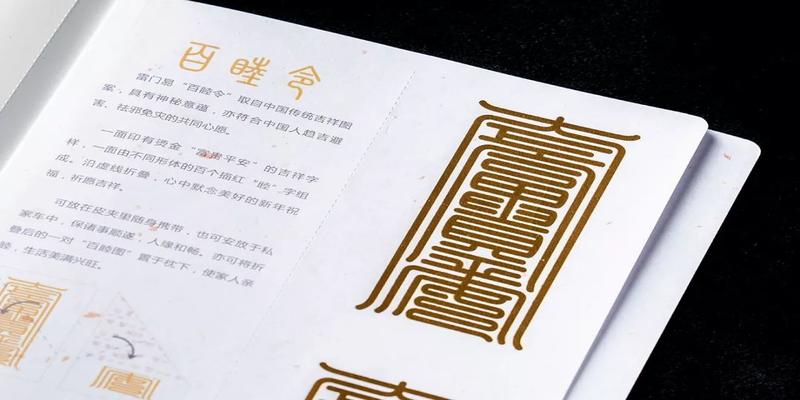 百睦令
雷门易“百睦令”取自中国传统吉祥图
案，具有神秘意蕴，亦符合中国人趋吉避
害、祛邪免灾的共同心愿。
一面印有烫金“富贵平安”的吉祥字
样，一面由不同形体的百个描红“睦”字组
成。沿虚线折叠，心中默念美好的新年祝
福，祈愿吉祥。
可放在皮夹里随身携带，也可安放于私
家车中，保诸事顺遂，人缘和畅。亦可将折
叠后的一对“百睦图”置于枕下，使家人亲
睦，生活美满兴旺。